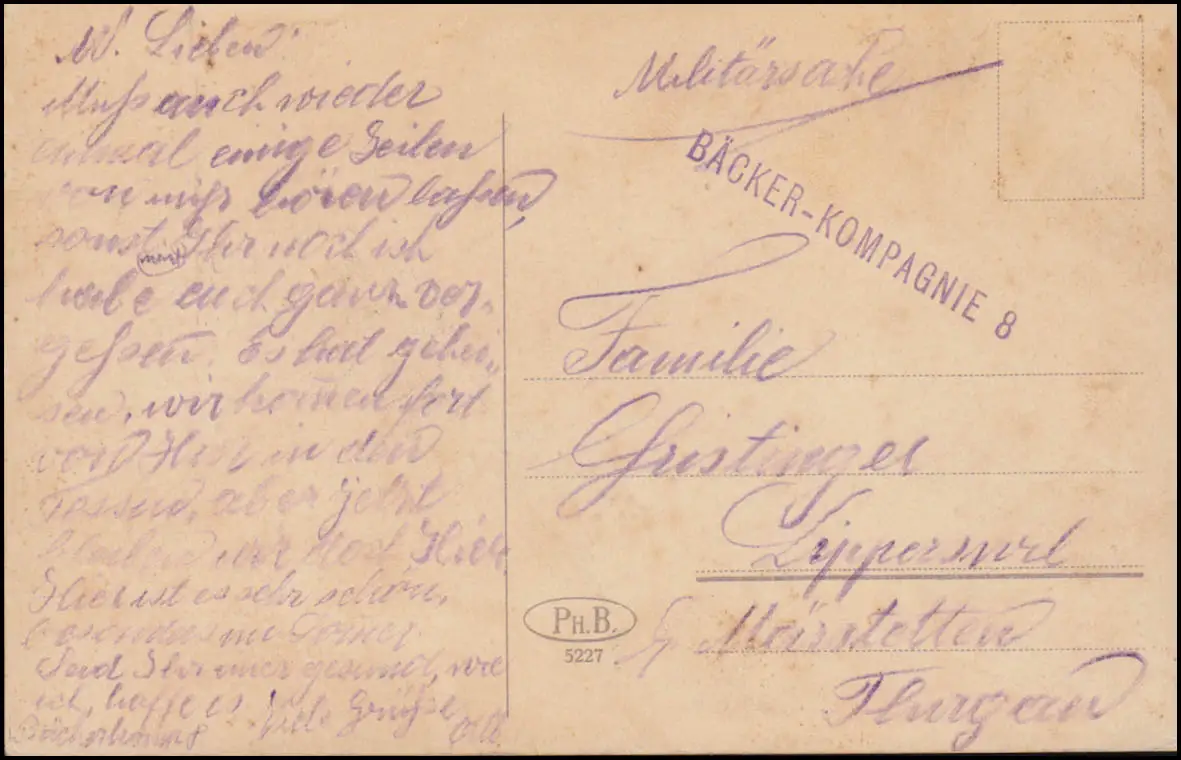 M. Lieben!
Muss auch wieder
einmal einige Zeilen
von mir hören lassen,
sonst meint Ihr noch ich
habe euch ganz ver-
gessen. Es hat gehei-
sen, wir kom̄en fort
von Hier in den
Tessin, aber jetzt
bleiben wir noch Hier.
Hier ist es sehr schön,
besonders im Som̄er
Seid Ihr immer gesund, wie
ich, hoffe es Viele Grüsse
Bäckerkomp 8
Militärsache
BÄCKER-KOMPAGNIE 8
Familie
Gristinger
Lipperswil
Märstetten
Thurgau
PH.B.
5227